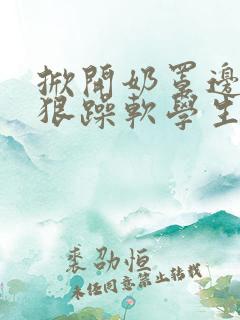 掀開奶罩邊
狠躁軟學生
裘劭恒
未經同意禁止轉載